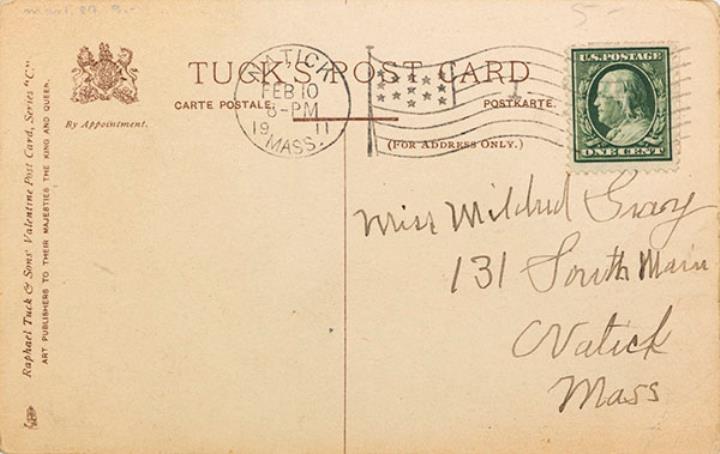 5-
TUCK'S POST CARD
CARTE POSTALE.
POSTKARTE.
(FOR ADDRESS ONLY.)
By Appointment.
Raphael Tuck & Sons' Valentine Post Card, Series "C."
ART PUBLISHERS TO THEIR MAJESTIES THE KING AND QUEEN.
NATICK
FEB 10
8-PM
19 11
MASS.
U.S. POSTAGE
ONE CENT
Miss Mildred Gray
131 South Main
Natick
Mass